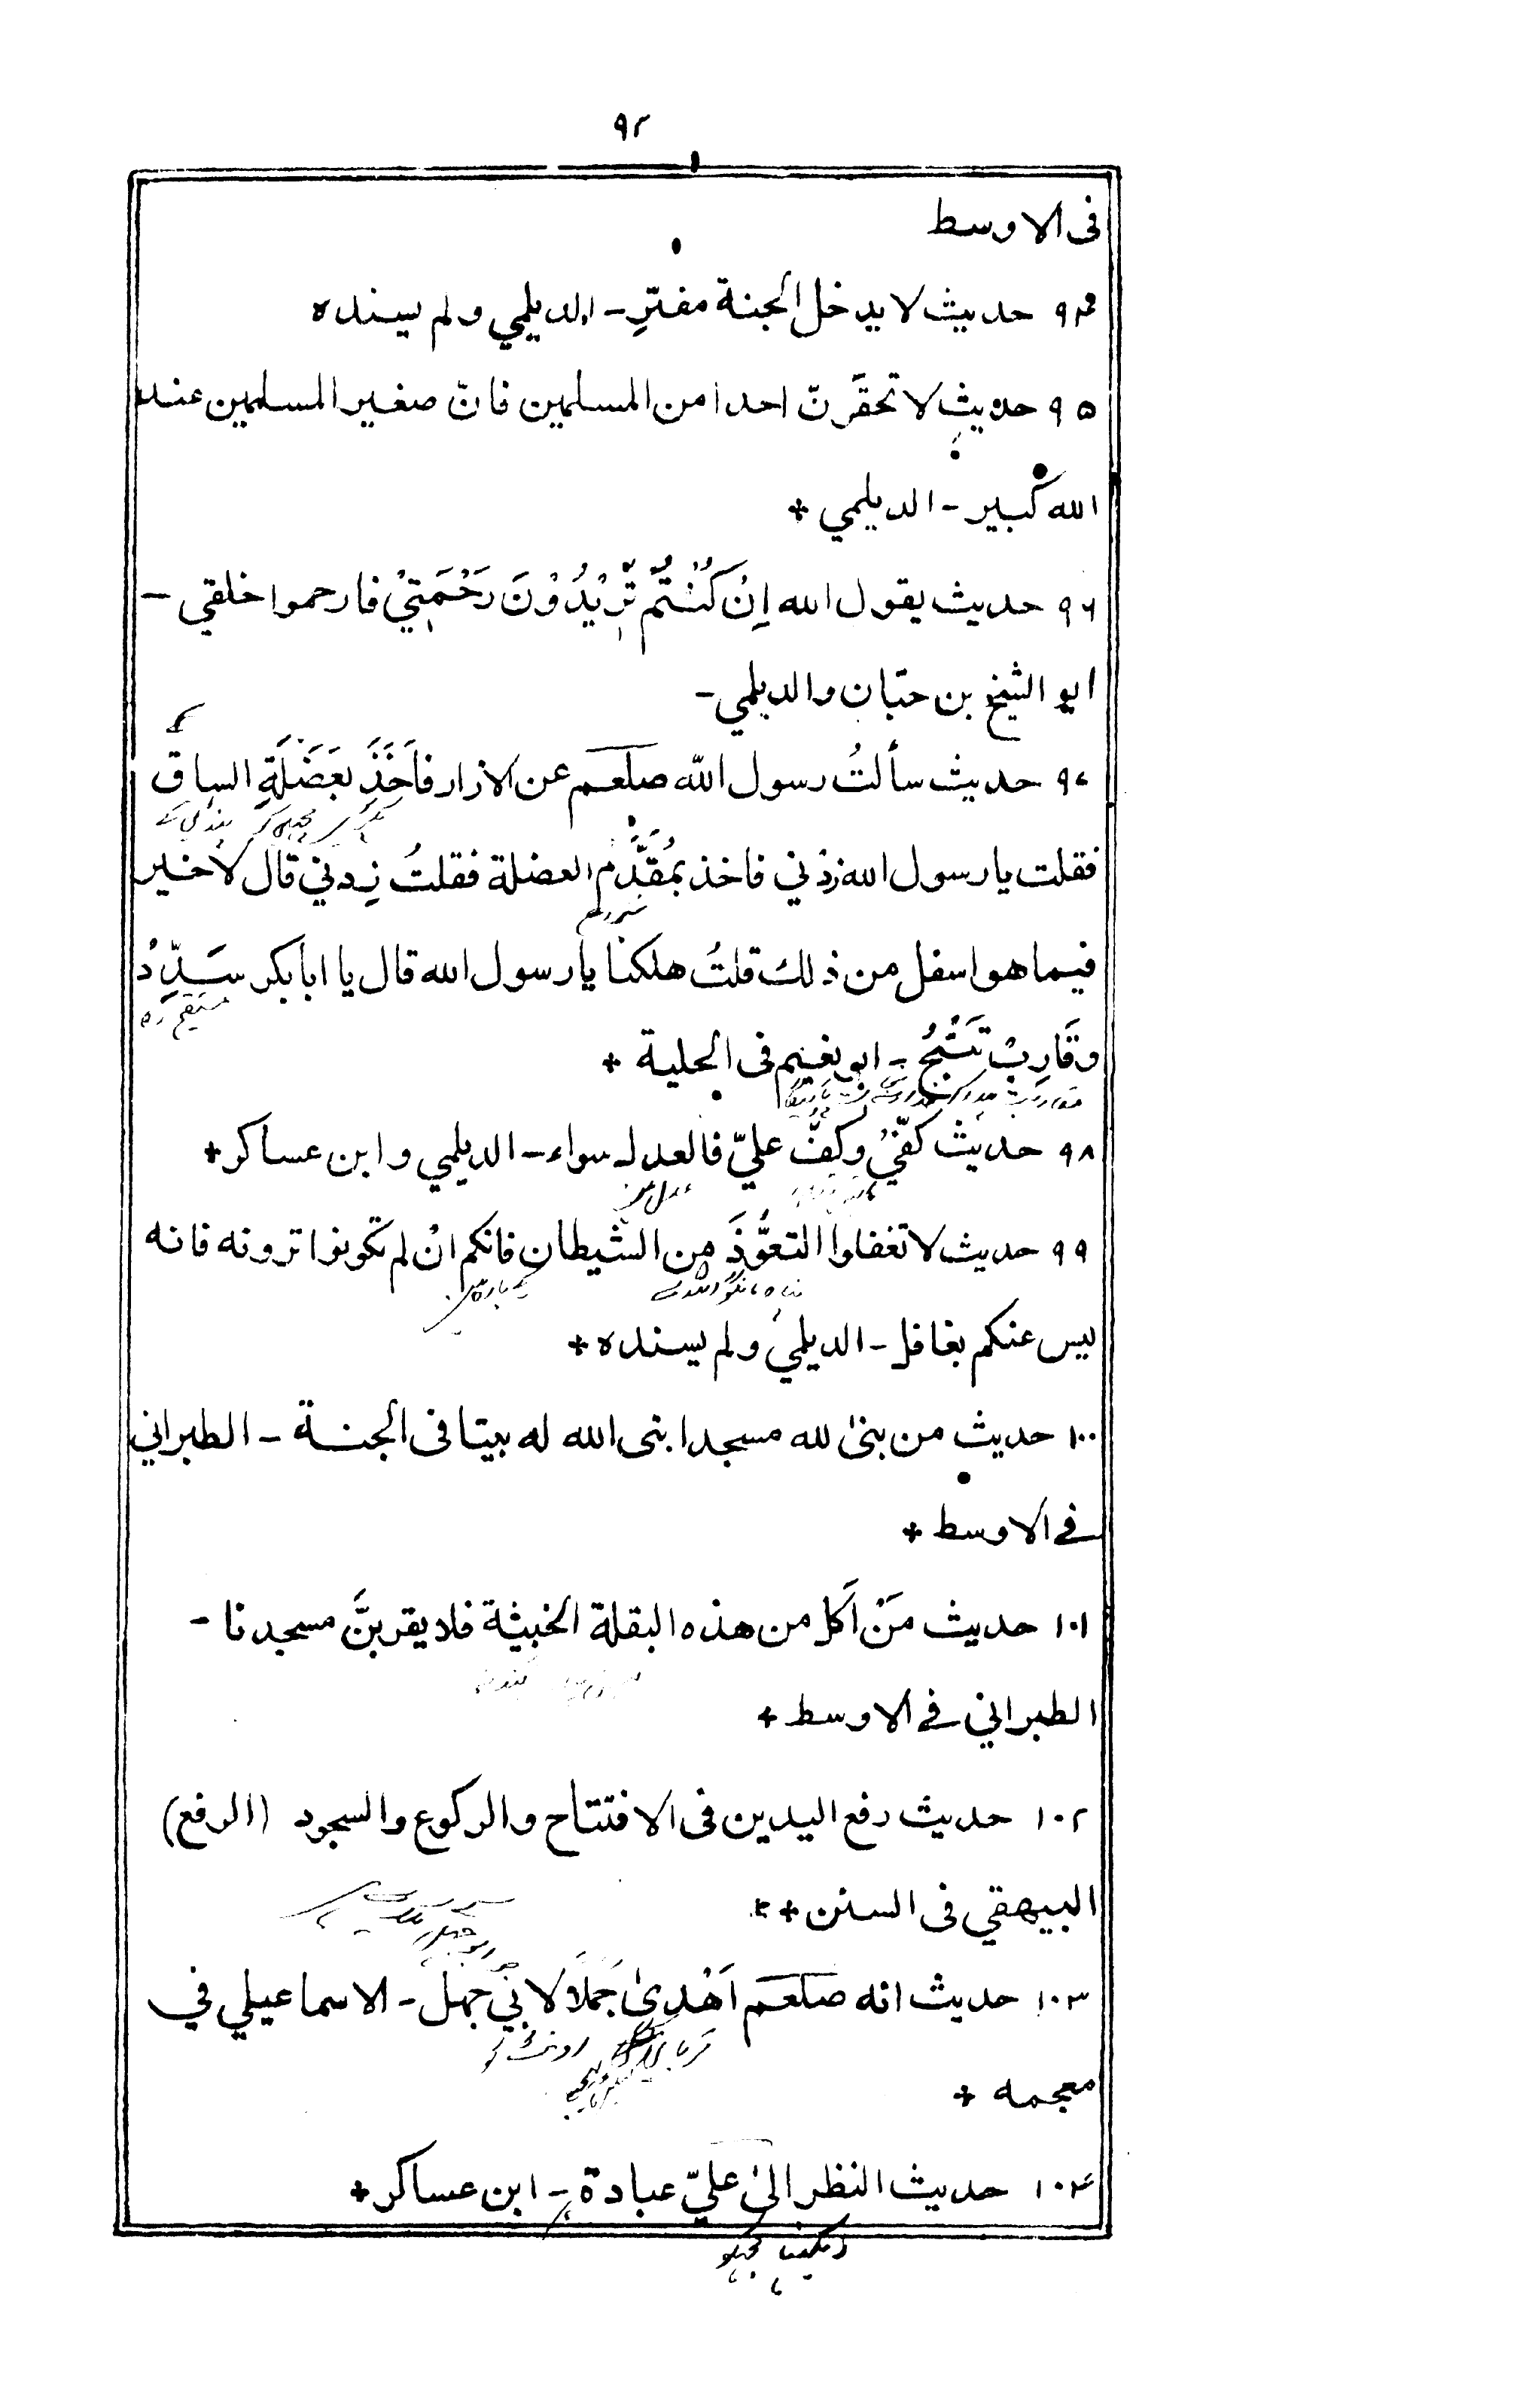 ٩٢
فى الاوسط
٩٤ حديث لا يدخل الجنة مفترٍ - الديلمي ولم يسنده
٩٥ حديث لا تحقّرنّ احدا من المسلمين فانّ صغير المسلمين عند
الله كبير - الديلمي +
٩٦ حديث يقول الله اِنْ كُنْتُمْ تُرِيْدُوْنَ رَحْمَتِيْ فارحموا خلقي -
ابو الشيخ بن حبّان والديلمي -
٩٧ حديث سألتُ رسول الله صلعم عن الازار فاَخَذَ بعَضَلَةِ الساق
فقلت يا رسول الله زدْني فاخذ بمُقَدَّم العضلة فقلتُ زِدني قال لا خير
فيما هو اسفل من ذلك قلتُ هلكنا يا رسول الله قال يا ابا بكر سَدِّدْ
وقَارِبْ تَنْجُ - ابو نعيم فى الحلية +
٩٨ حديث كفّيْ وكفّ عليّ فى العدل سواء - الديلمي وابن عساكر +
٩٩ حديث لا تغفلوا التعوُّذَ من الشيطان فانكم انْ لم تكونوا ترونه فانه
ليس عنكم بغافل - الديلمي ولم يسنده +
١٠٠ حديث من بنىٰ لله مسجدا بنى الله له بيتا فى الجنة - الطبراني
فے الاوسط +
١٠١ حديث مَنْ اَكل من هذه البقلة الخبيثة فلا يقربنَّ مسجدنا -
الطبراني فے الاوسط +
١٠٢ حديث رفع اليدين فى الافتتاح والركوع والسجود (الرفع)
البيهقي فى السنن +
١٠٣ حديث انه صلعم اَهْدىٰ جَمَلًا لابي جهل - الاسماعيلي في
معجمه +
١٠٤ حديث النظر الىٰ عليّ عبادة - ابن عساكر +